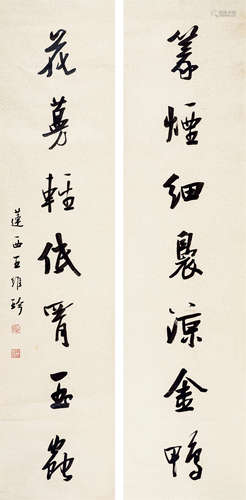 篆煙細裊涼金鴨
花蔓輕低罥玉蟲
蓮西王維珍